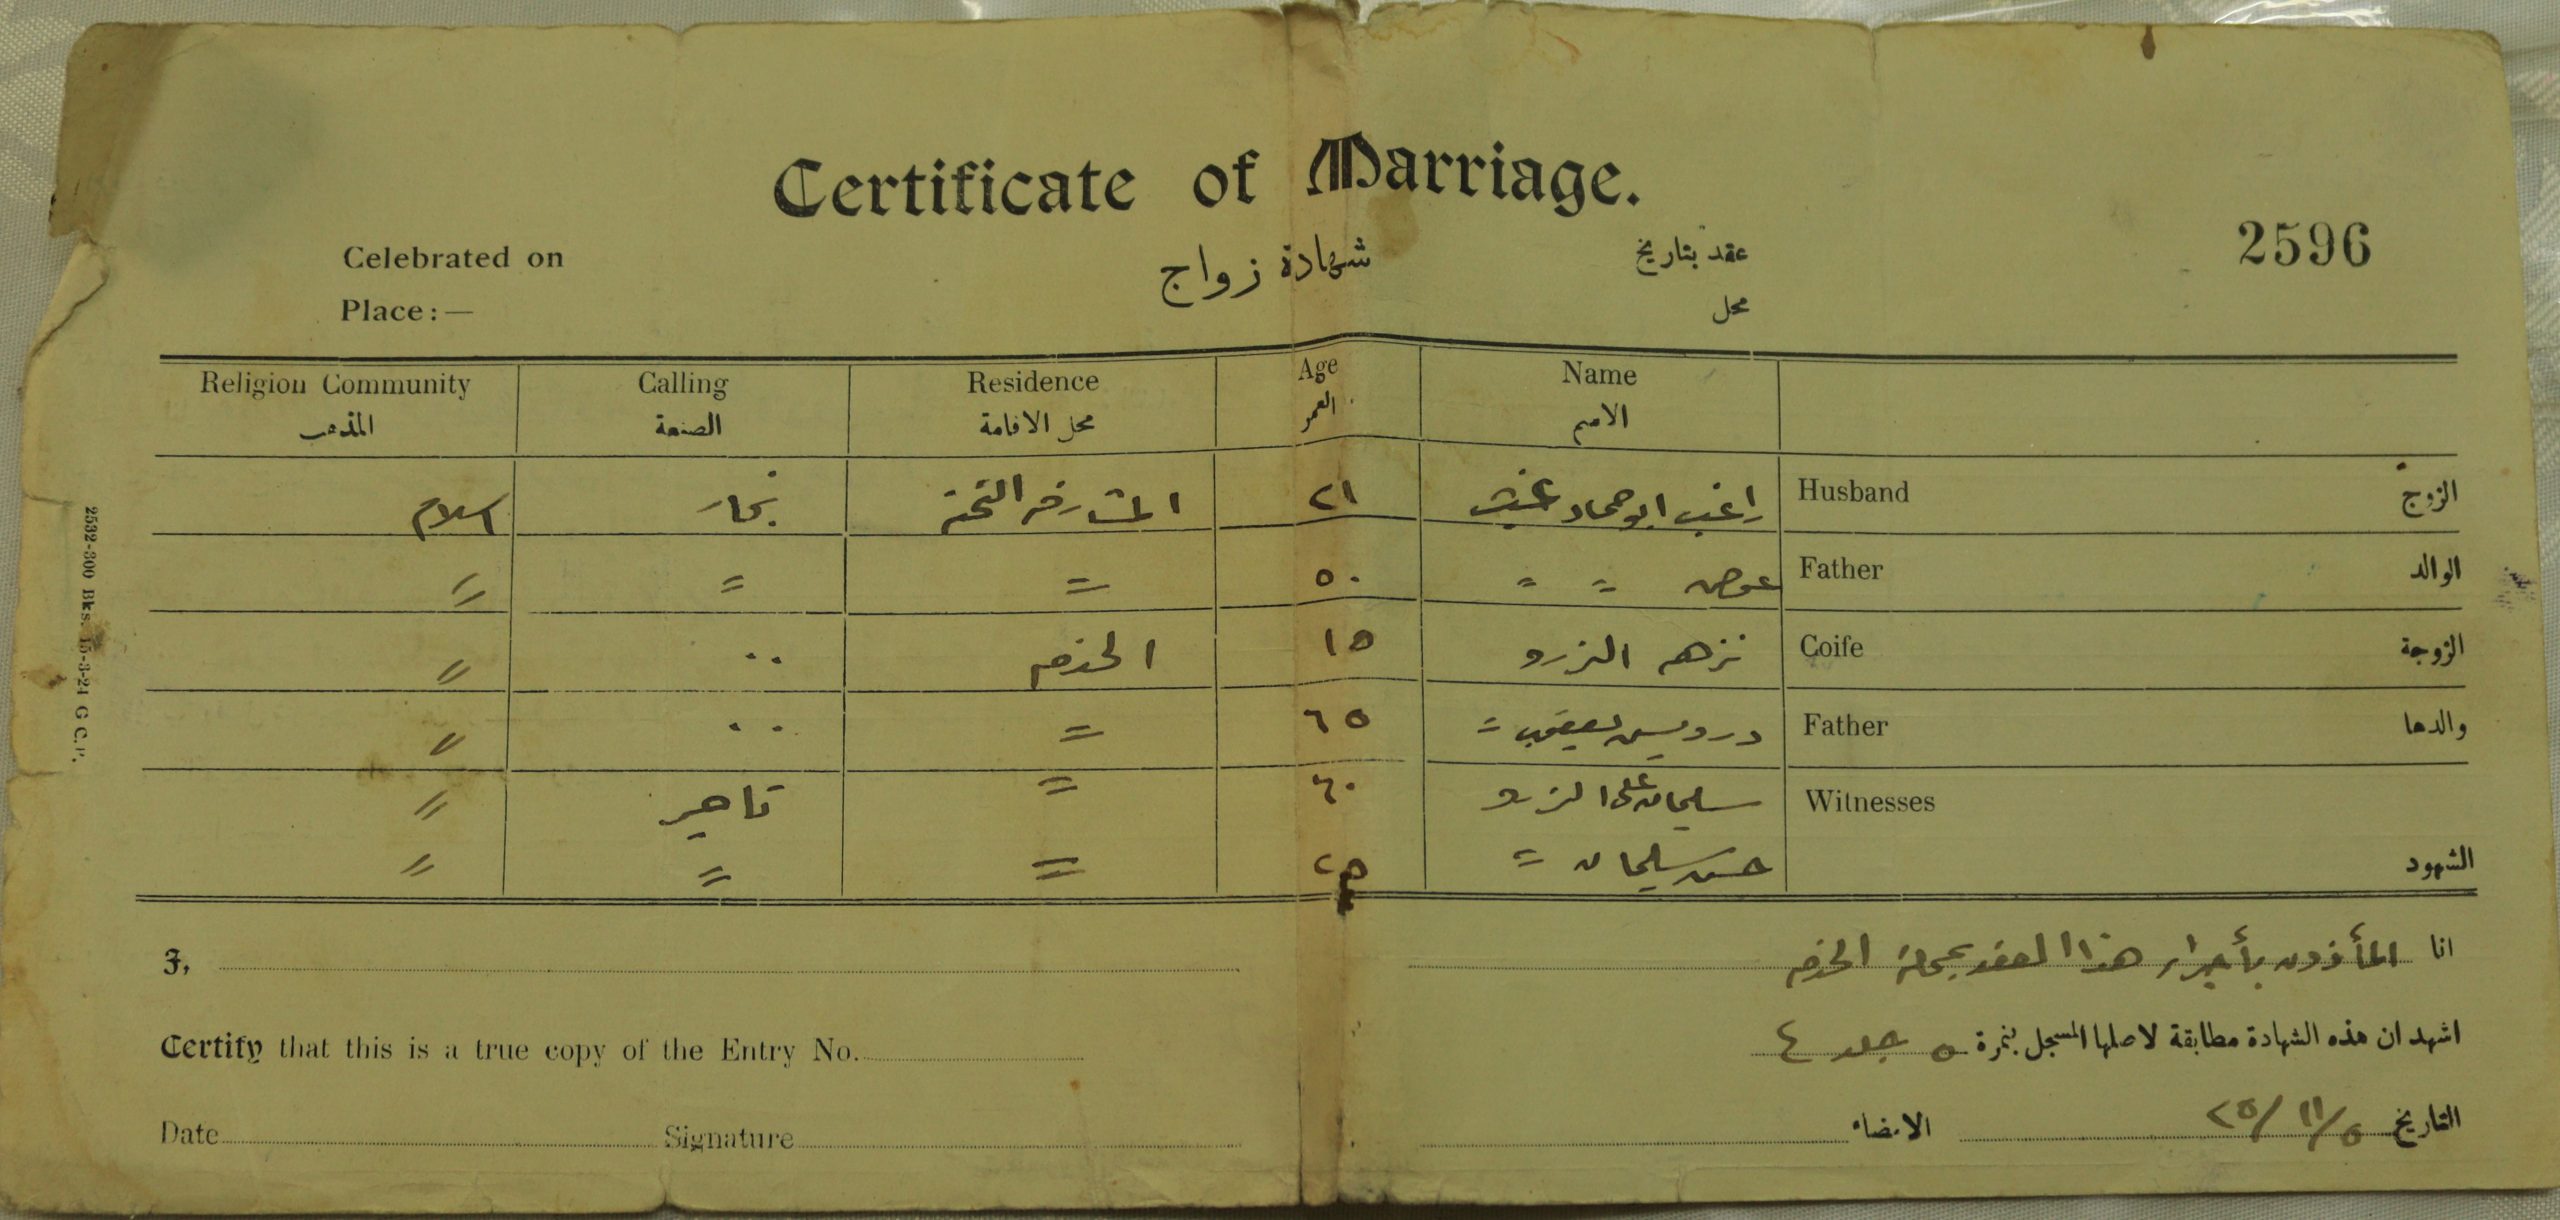 Certificate of Marriage.
شهادة زواج
2596
Celebrated on
عقد بتاريخ
Place: —
محل
Religion Community Calling Residence Age Name
المذهب الصنعة محل الاقامة العمر الاسم
اسلام نجار ٢١ راغب ابو حماد Husband الزوج
〃 〃 〃 ٥٠ عوض 〃 〃 Father الوالد
〃 ١٥ نزهه الزرو Coife الزوجة
〃 〃 ٦٥ درويش يعقوب 〃 Father والدها
〃 تاجر 〃 ٦٠ سليمان علي الزرو Witnesses
〃 〃 〃 ٢٥ حسن سليمان 〃 الشهود
انا المأذون بأجراء هذا العقد بمحلة
I,
اشهد ان هذه الشهادة مطابقة لاصلها المسجل بنمرة ٥ جلد ٤
Certify that this is a true copy of the Entry No.
التاريخ ٥/١١/٢٥ الامضاء
Date Signature
2532-300 Bks. 15-3-24 G C.P.